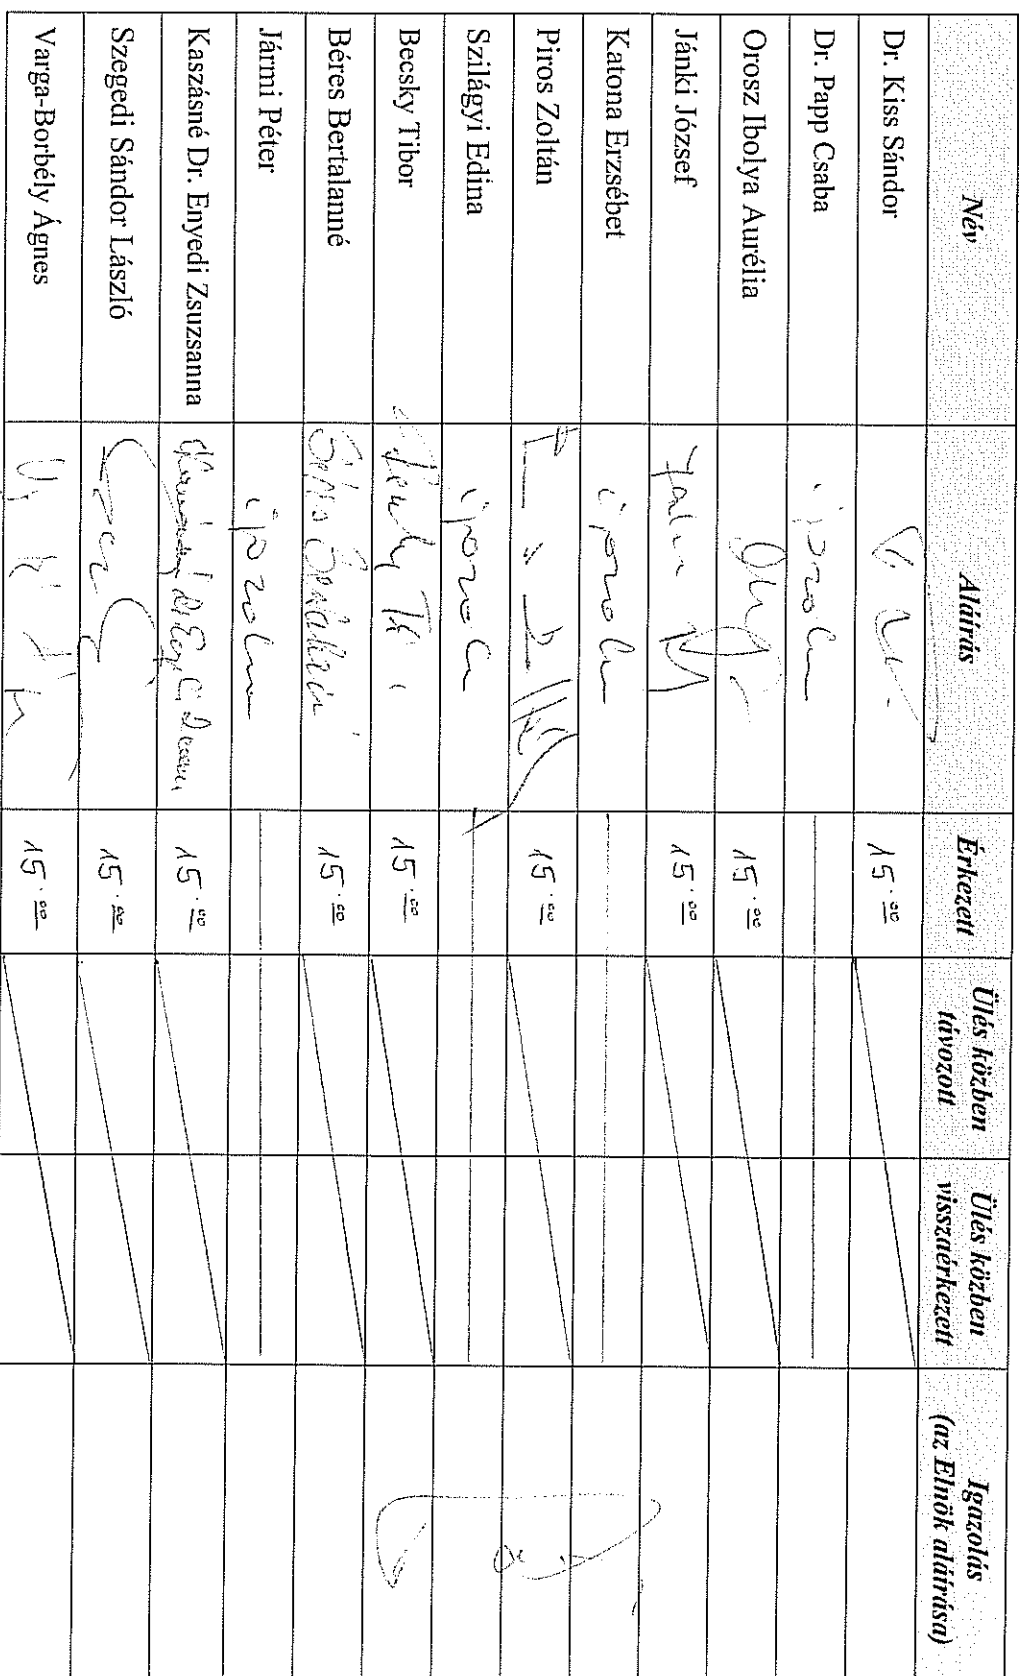 Név Aláírás Érkezett Ülés közben távozott Ülés közben visszaérkezett Igazolás (az Elnök aláírása)
Dr. Kiss Sándor 15.00
Dr. Papp Csaba
Orosz Ibolya Aurélia 15.00
Jánki József 15.00
Katona Erzsébet
Piros Zoltán 15.00
Szilágyi Edina
Becsky Tibor 15.00
Béres Bertalanné 15.00
Jármi Péter
Kaszásné Dr. Enyedi Zsuzsanna 15.00
Szegedi Sándor László 15.00
Varga-Borbély Ágnes 15.00